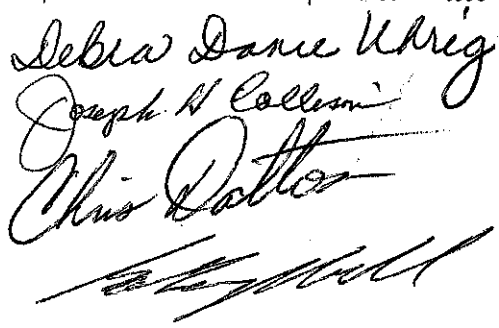 Debra Danie Uhrig
Joseph H Collison
Chris Dalton